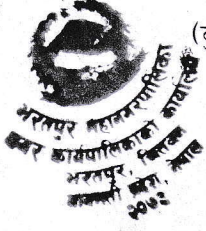 भरतपुर महानगरपालिका
नगर कार्यपालिकाको कार्यालय
भरतपुर, चितवन
नेपाल
२०७३